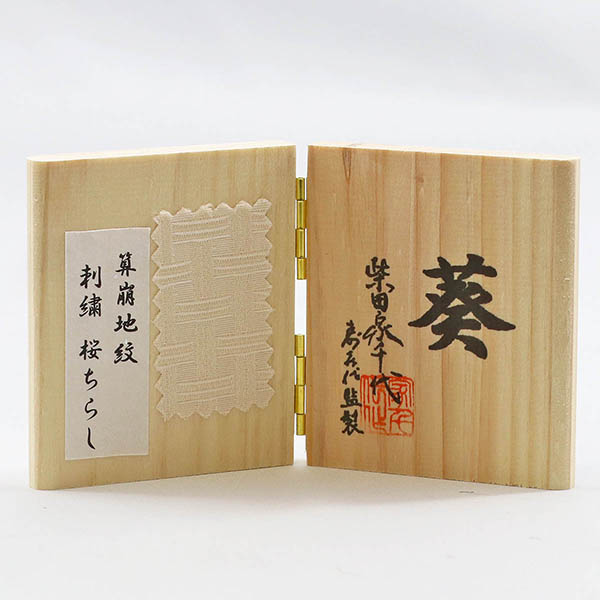 葵
柴田家千代
監製
算崩地紋
刺繍 桜ちらし